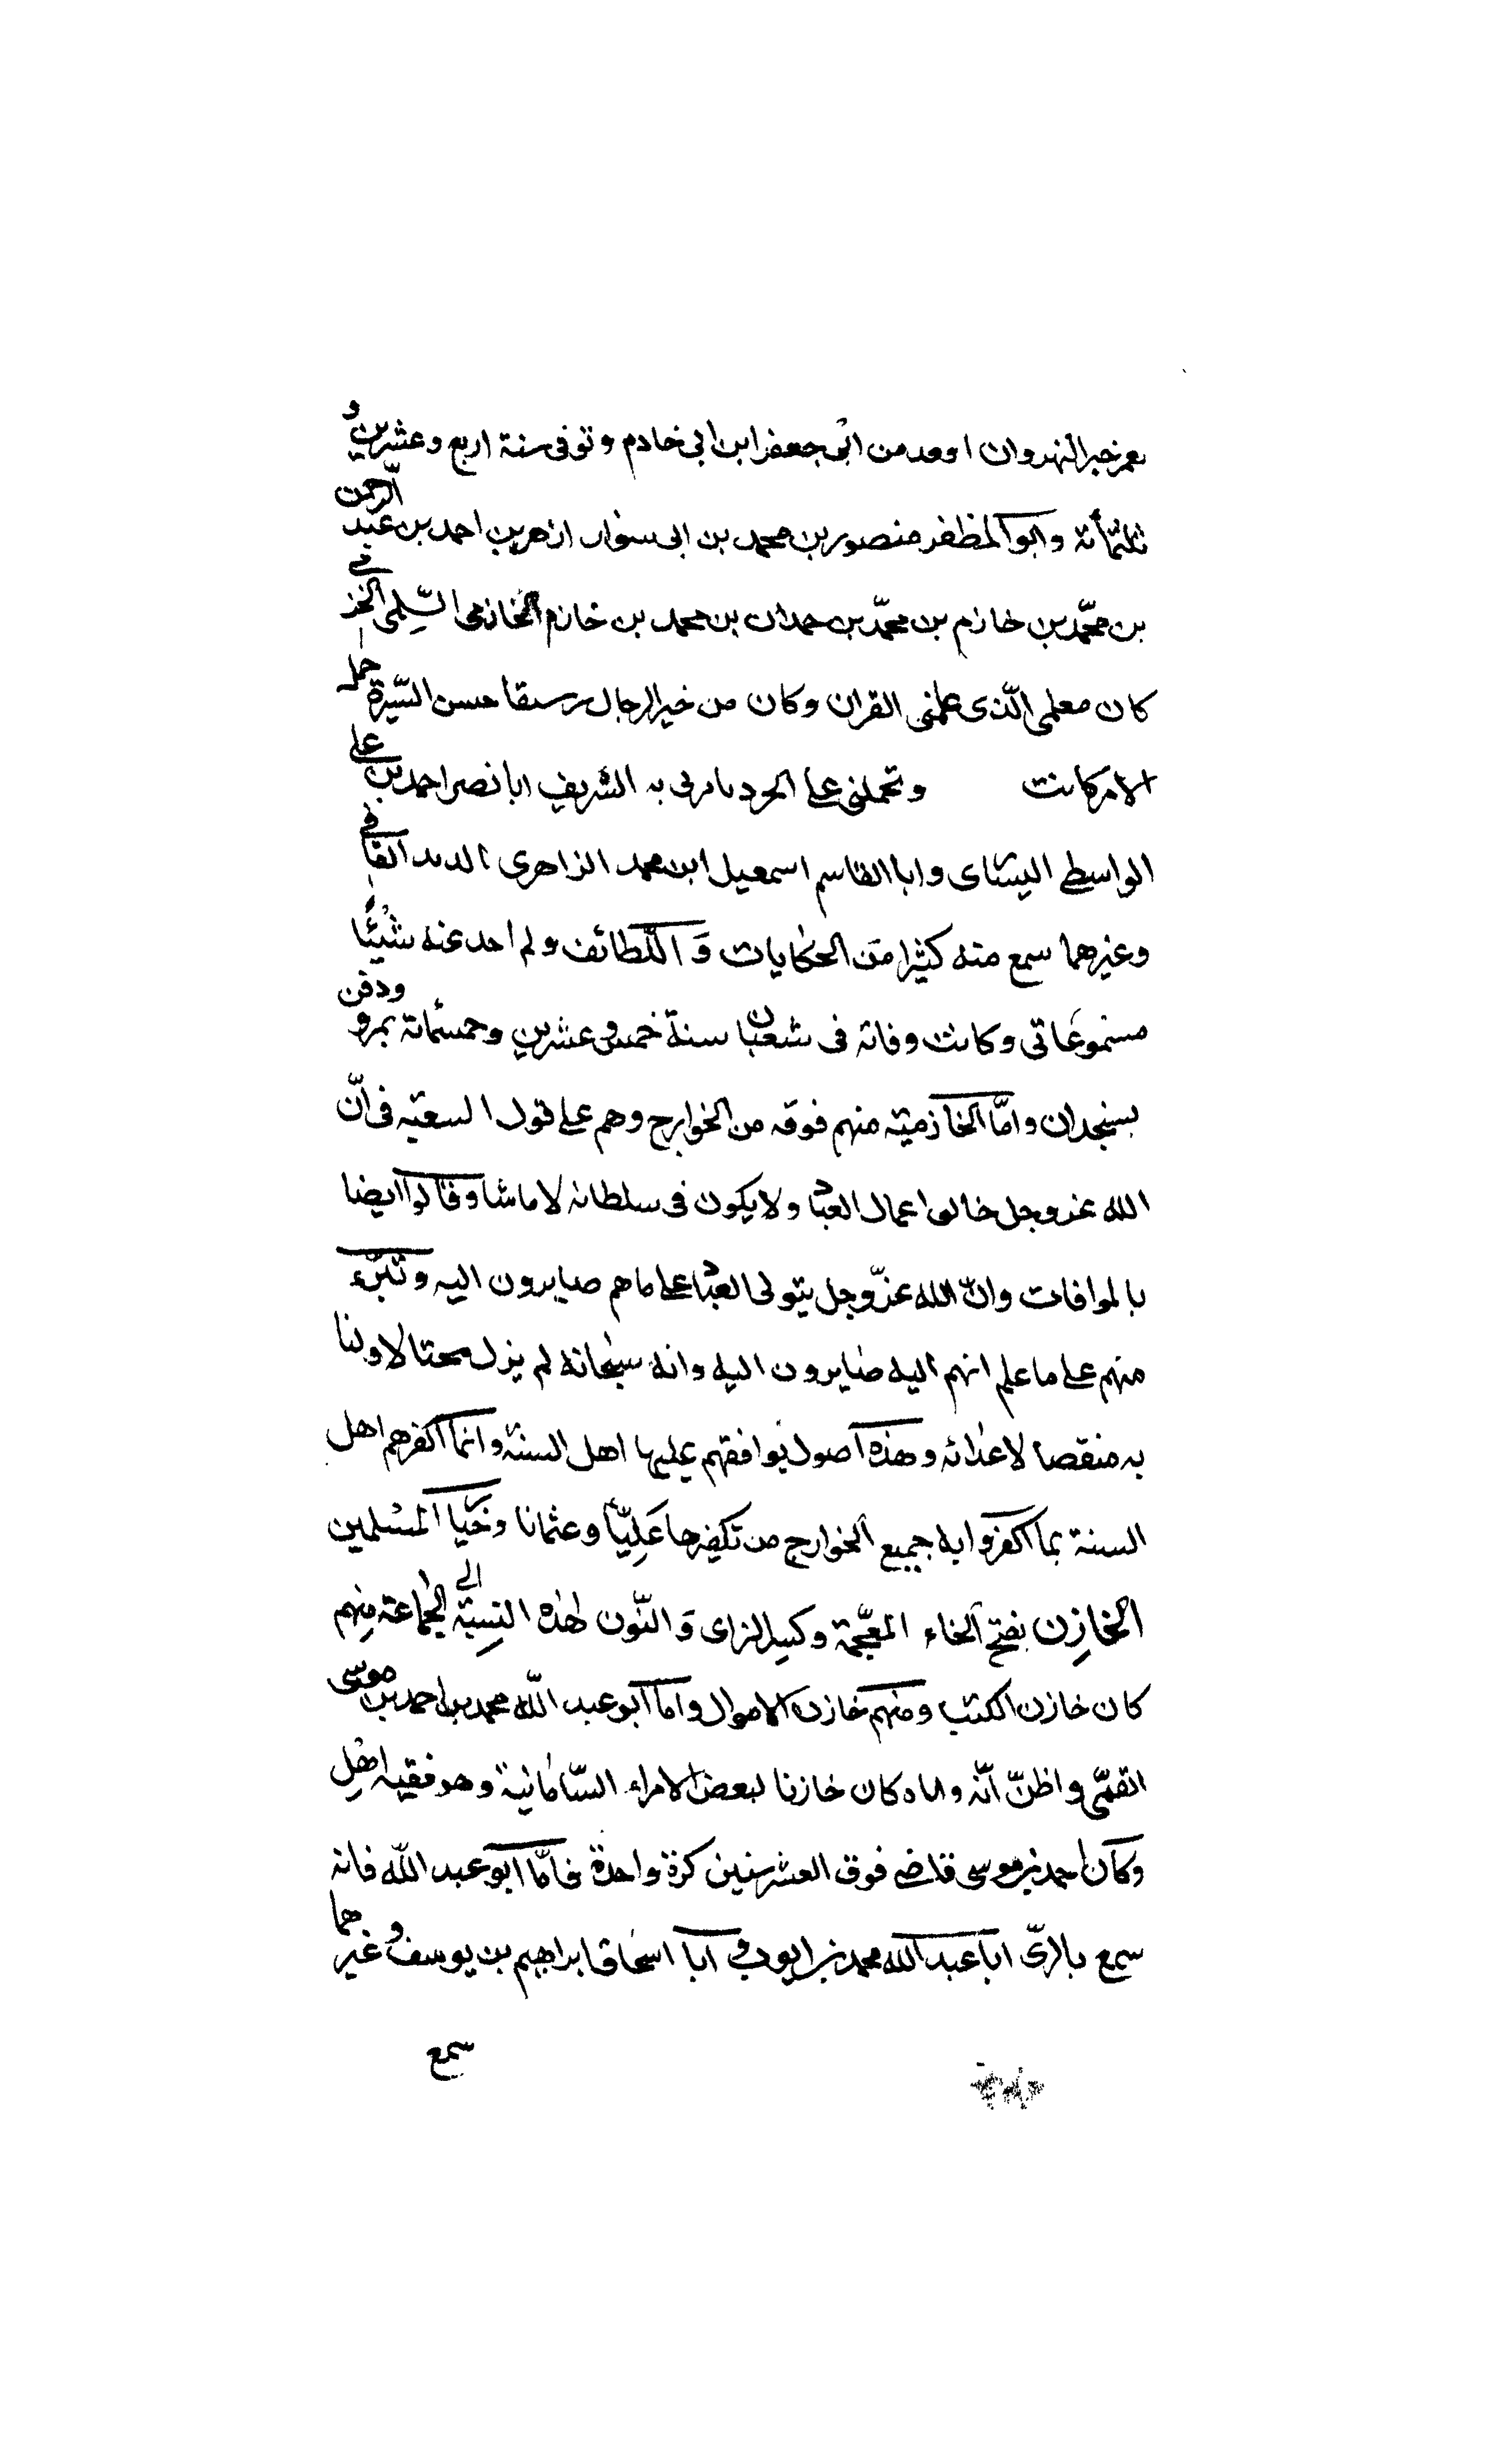 خبر النهروان من ابى جعفر ابن ابى خادم وتوفى سنة اربع وعشرين و
ثلثمائة وابو المظفر منصور بن محمد بن ابى سوار ازهر بن احمد بن عبد الرحمن
بن محمّد بن خازم بن محمّد بن حمدان بن محمد بن خازم الخازمى السّلمى
كان معلمى الّذى علمنى القران وكان من خير الرجال حسن السّيرة
الامر كانت وتحملنى على به الشريف ابا نصر احمد بن على
الواسطى وابا القاسم اسمعيل ابن محمد الزاهرى
وغيرهما سمع منه كثيرا من الحكايات وَ اللّطائف ولم عنه شيئًا
وكانت وفاته فى شعبان سنة خمس وعشرين وخمسمائة بمرو ودفن
بسنجدان وامّا الخازميّه منهم فوقه من الخوارج وهم على قول فى انّ
الله عز وجل اعمال العباد ولا يكون فى سلطانه لا ماشا وقالوا ايضا
بالموافات وانّ الله عزّ وجل يتولى العباد على ما هم صايرون اليه وتبرّء
منهم على ما علم انهم اليه صايرون اليه وانه سبحانه لم يزل
به منقصا لاعدائه وهذه اصول يوافقهم عليها اهل السنة وانما اكفرهم اهل
السنة بما اكفروا به جميع الخوارج من تكفيرها عَلِيّاً وعثمانا المسلمين
الخازِن بفتح الخاء المعجّمة وكسر الزاى وَ النّون لهذه النِسبَة الى لجماعة مِنهم
كان خازن الكتب ومنهم خازن الاموال واما ابو عبد اللّه محمد بن احمد بن موسى
القمّى واظنّ انّه كان خازنا لبعض الامراء السّامانية وهو فقيه اهل
وكان احمد بن موسى قاضى فوق العشر سنين كرة واحدة فامّا ابو عبد اللّه فانه
سمع بالرىّ ابا عبد الله محمد بن ايوب و ابا اسحاق ابراهيم بن يوسف وغيرهما
سمع